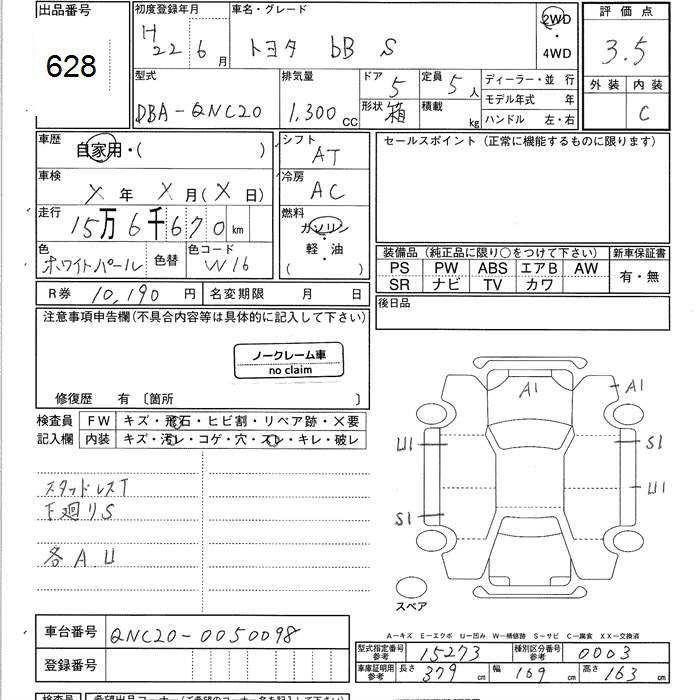 出品番号
628
初度登録年月
H 22 6 月
車名・グレード
トヨタ bB S
2WD
・
4WD
評価点
3.5
外装 内装
C
型式
DBA-QNC20
排気量
1,300 CC
ドア 5
形状 箱
定員 5 人
積載 kg
ディーラー・並 行
モデル年式 年
ハンドル 左・右
車歴
自家用・( )
車検
X 年 X 月 (X 日)
走行
15万6千670 km
色
ホワイトパール
色替
色コード
W16
シフト
AT
冷房
AC
燃料
ガソリン
・
軽・油
( )
セールスポイント (正常に機能するものに限ります)
装備品 (純正品に限り○をつけて下さい)
PS PW ABS エアB AW
SR ナビ TV カワ
新車保証書
有・無
後日品
R券 10,190 円
名変期限 月 日
注意事項申告欄(不具合内容等は具体的に記入して下さい)
ノークレーム車
no claim
修復歴 有 〔箇所 〕
検査員
記入欄
FW キズ・飛石・ヒビ割・リペア跡・×要
内装 キズ・汚レ・コゲ・穴・スレ・キレ・破レ
スタッドレスT
下廻りS
各A.U
A1
A1
U1
S1
U1
S1
スペア
車台番号 QNC20-0050098
登録番号
A-キズ E-エクボ U-凹み W-補修跡 S-サビ C-腐食 XX-交換済
型式指定番号
参考
15273
種別区分番号
参考
0003
車庫証明用
参考
長さ 379 cm 幅 169 cm 高さ 163 cm